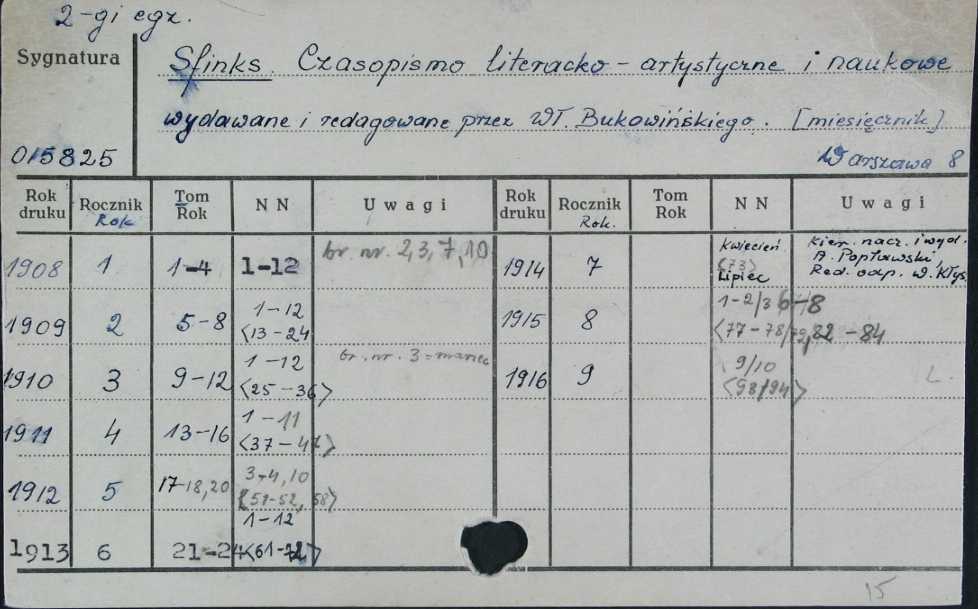 2-gi egz.
Sygnatura
Sfinks. Czasopismo literacko-artystyczne i naukowe
wydawane i redagowane przez Wł. Bukowińskiego. [miesięcznik]
015825 Warszawa 8
Rok druku Rocznik Rok Tom Rok NN Uwagi Rok druku Rocznik Rok. Tom Rok NN Uwagi
1908 1 1-4 1-12 br. nr. 2,3,7,10
1909 2 5-8 1-12 <13-24
1910 3 9-12 1-12 <25-36> br. nr. 3=marzec
1911 4 13-16 1-11 <37-47>
1912 5 17-18,20 3-4,10 <51-52,58>
1913 6 21-24 1-12 <61-72>
1914 7 kwiecień <73> Lipiec Kier. nacz. i wyd. A. Popławski, Red. odp. W. Kłys.
1915 8 1-2/3 6-8 <77-78/79,82-84
1916 9 9/10 <93/94> L.
15